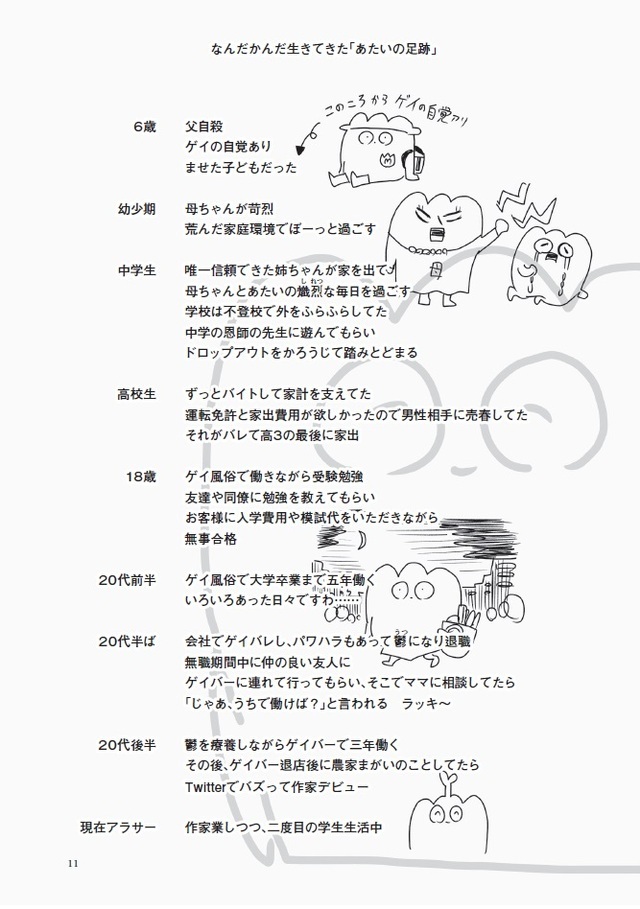 なんだかんだ生きてきた「あたいの足跡」
このころから ゲイの自覚アリ
6歳 父自殺
ゲイの自覚あり
ませた子どもだった
幼少期 母ちゃんが苛烈
荒んだ家庭環境でぼーっと過ごす
母
中学生 唯一信頼できた姉ちゃんが家を出て
しれつ
母ちゃんとあたいの熾烈な毎日を過ごす
学校は不登校で外をふらふらしてた
中学の恩師の先生に遊んでもらい
ドロップアウトをかろうじて踏みとどまる
高校生 ずっとバイトして家計を支えてた
運転免許と家出費用が欲しかったので男性相手に売春してた
それがバレて高3の最後に家出
18歳 ゲイ風俗で働きながら受験勉強
友達や同僚に勉強を教えてもらい
お客様に入学費用や模試代をいただきながら
無事合格
20代前半 ゲイ風俗で大学卒業まで五年働く
いろいろあった日々ですわ……
うつ
20代半ば 会社でゲイバレし、パワハラもあって鬱になり退職
無職期間中に仲の良い友人に
ゲイバーに連れて行ってもらい、そこでママに相談してたら
「じゃあ、うちで働けば?」と言われる ラッキ〜
20代後半 鬱を療養しながらゲイバーで三年働く
その後、ゲイバー退店後に農家まがいのことしてたら
Twitterでバズって作家デビュー
現在アラサー 作家業しつつ、二度目の学生生活中
11